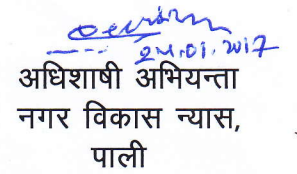 24.01.2017
अधिशाषी अभियन्ता
नगर विकास न्यास,
पाली